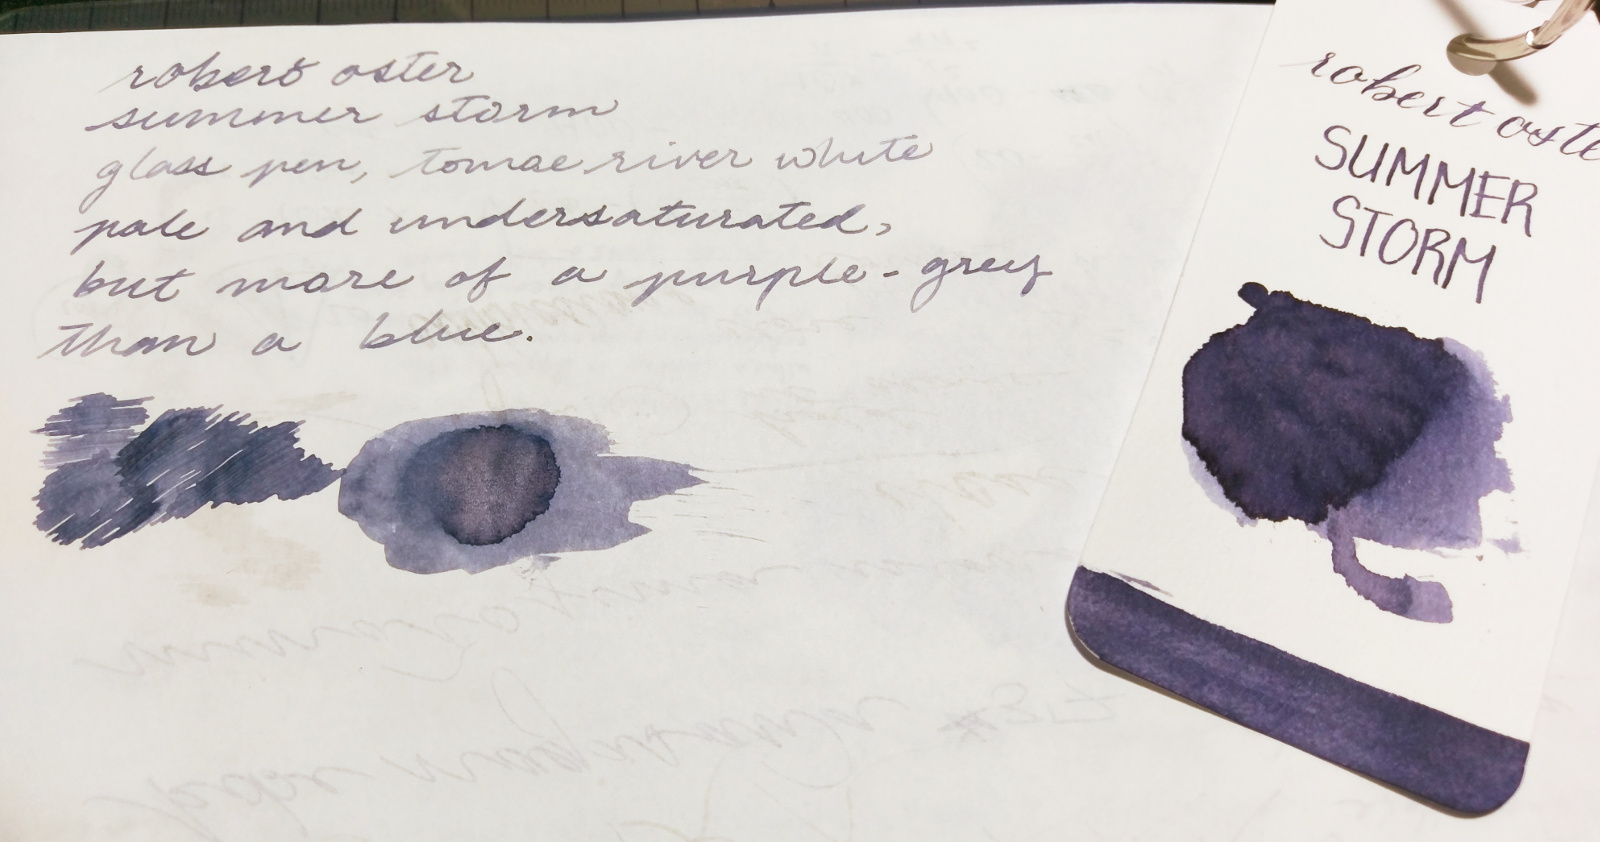 robert oster
summer storm
glass pen, tomoe river white
pale and undersaturated,
but more of a purple-grey
than a blue.
robert oste
SUMMER
STORM